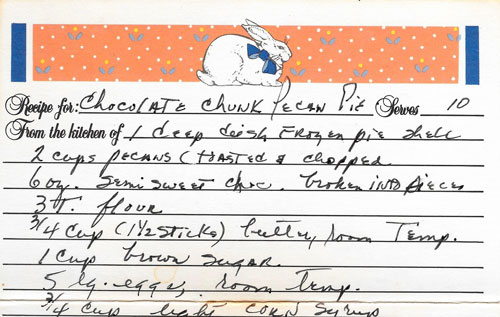 Recipe for: Chocolate Chunk Pecan Pie Serves 10
From the kitchen of 1 deep dish frozen pie shell
2 cups pecans (toasted & chopped
6 oz. semi sweet choc. broken into pieces
3 T. flour
3/4 cup (1 1/2 sticks) butter, room temp.
1 cup brown sugar.
5 lg. eggs, room temp.
3/4 cup light corn syrup